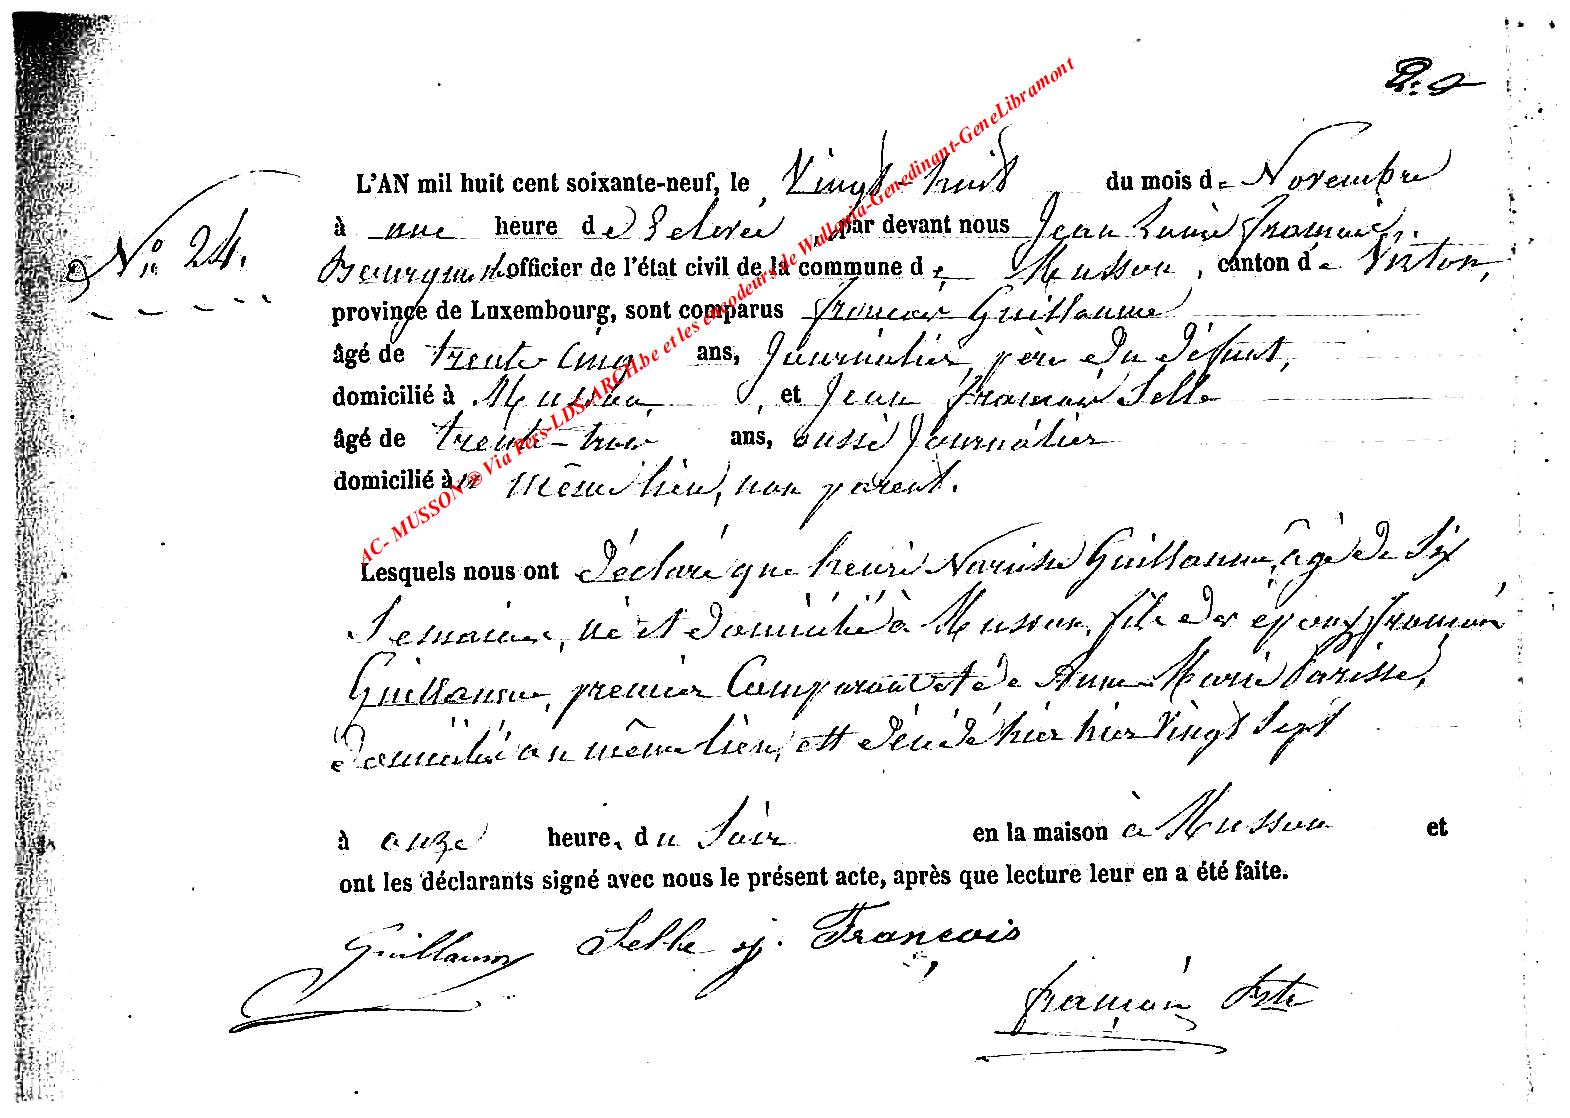 N° 24.
L'AN mil huit cent soixante-neuf, le Vingt-huit du mois de Novembre
à une heure de Relevée, par devant nous Jean Louis François
Bourguignon officier de l'état civil de la commune de Musson, canton de Virton,
province de Luxembourg, sont comparus françois Guillaume
âgé de trente cinq ans, Journalier, père du défunt,
domicilié à Musson, et Jean françois Selle
âgé de trente-trois ans, aussi Journalier
domicilié au même lieu, non parent.
Lesquels nous ont déclaré que henri Narcisse Guillaume, âgé de Six
Semaines, né et domicilié à Musson, fils des époux françois
Guillaume, premier Comparant et de Anne Marie Parisse,
domiciliés au même lieu, est décédé hier hier Vingt Sept
à onze heures du Soir en la maison à Musson et
ont les déclarants signé avec nous le présent acte, après que lecture leur en a été faite.
Guillaume Selle j. François
françois
AC- MUSSON ® Via Pers-LDS-ARCH.be et les encodeurs de Wallonia-Genedinant-GeneLibramont